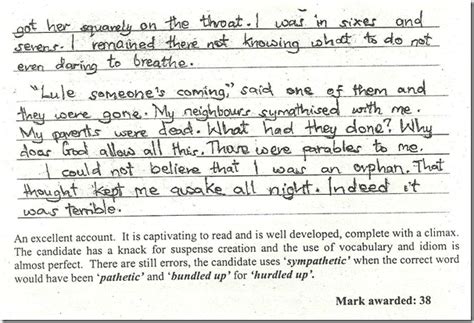 got her squarely on the throat. I was in sixes and
sevens. I remained there not knowing what to do not
even daring to breathe.
"Lule someone's coming," said one of them and
they were gone. My neighbours symathised with me.
My parents were dead. What had they done? Why
does God allow all this. Those were parables to me.
I could not believe that I was an orphan. That
thought kept me awake all night. Indeed it
was terrible.
An excellent account. It is captivating to read and is well developed, complete with a climax.
The candidate has a knack for suspense creation and the use of vocabulary and idiom is
almost perfect. There are still errors, the candidate uses 'sympathetic' when the correct word
would have been 'pathetic' and 'bundled up' for 'hurdled up'.
Mark awarded: 38